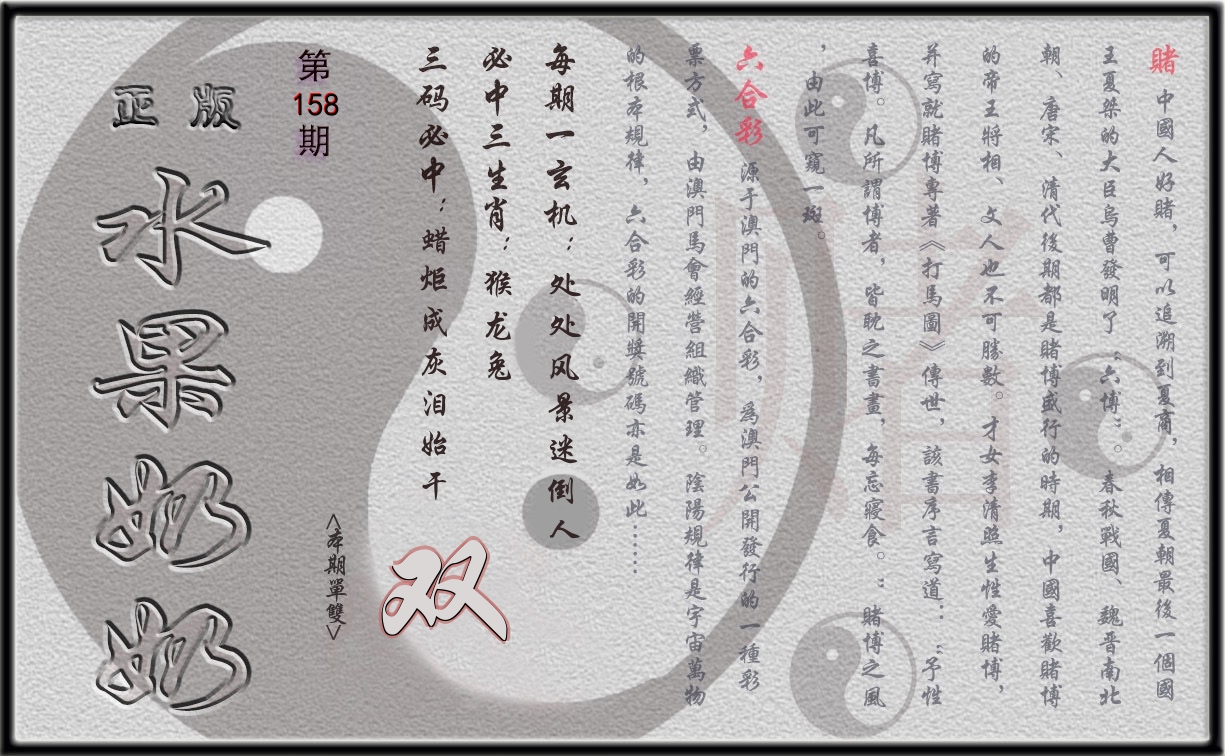 賭 中國人好賭，可以追溯到夏商，相傳夏朝最後一個國
王夏桀的大臣烏曹發明了“六博”。春秋戰國、魏晋南北
朝、唐宋、清代後期都是賭博盛行的時期，中國喜歡賭博
的帝王將相、文人也不可勝數。才女李清照生性愛賭博，
并寫就賭博專著《打馬圖》傳世，該書序言寫道：“予性
喜博。凡所謂博者，皆耽之書畫，每忘寢食。”賭博之風
，由此可窺一斑。
六合彩 源于澳門的六合彩，爲澳門公開發行的一種彩
票方式，由澳門馬會經營組織管理。陰陽規律是宇宙萬物
的根本規律，六合彩的開獎號碼亦是如此……
每期一玄机：处处风景迷倒人
必中三生肖：猴龙兔
三码必中：蜡炬成灰泪始干
双
<本期單雙>
第
158
期
正版
水果奶奶
赌